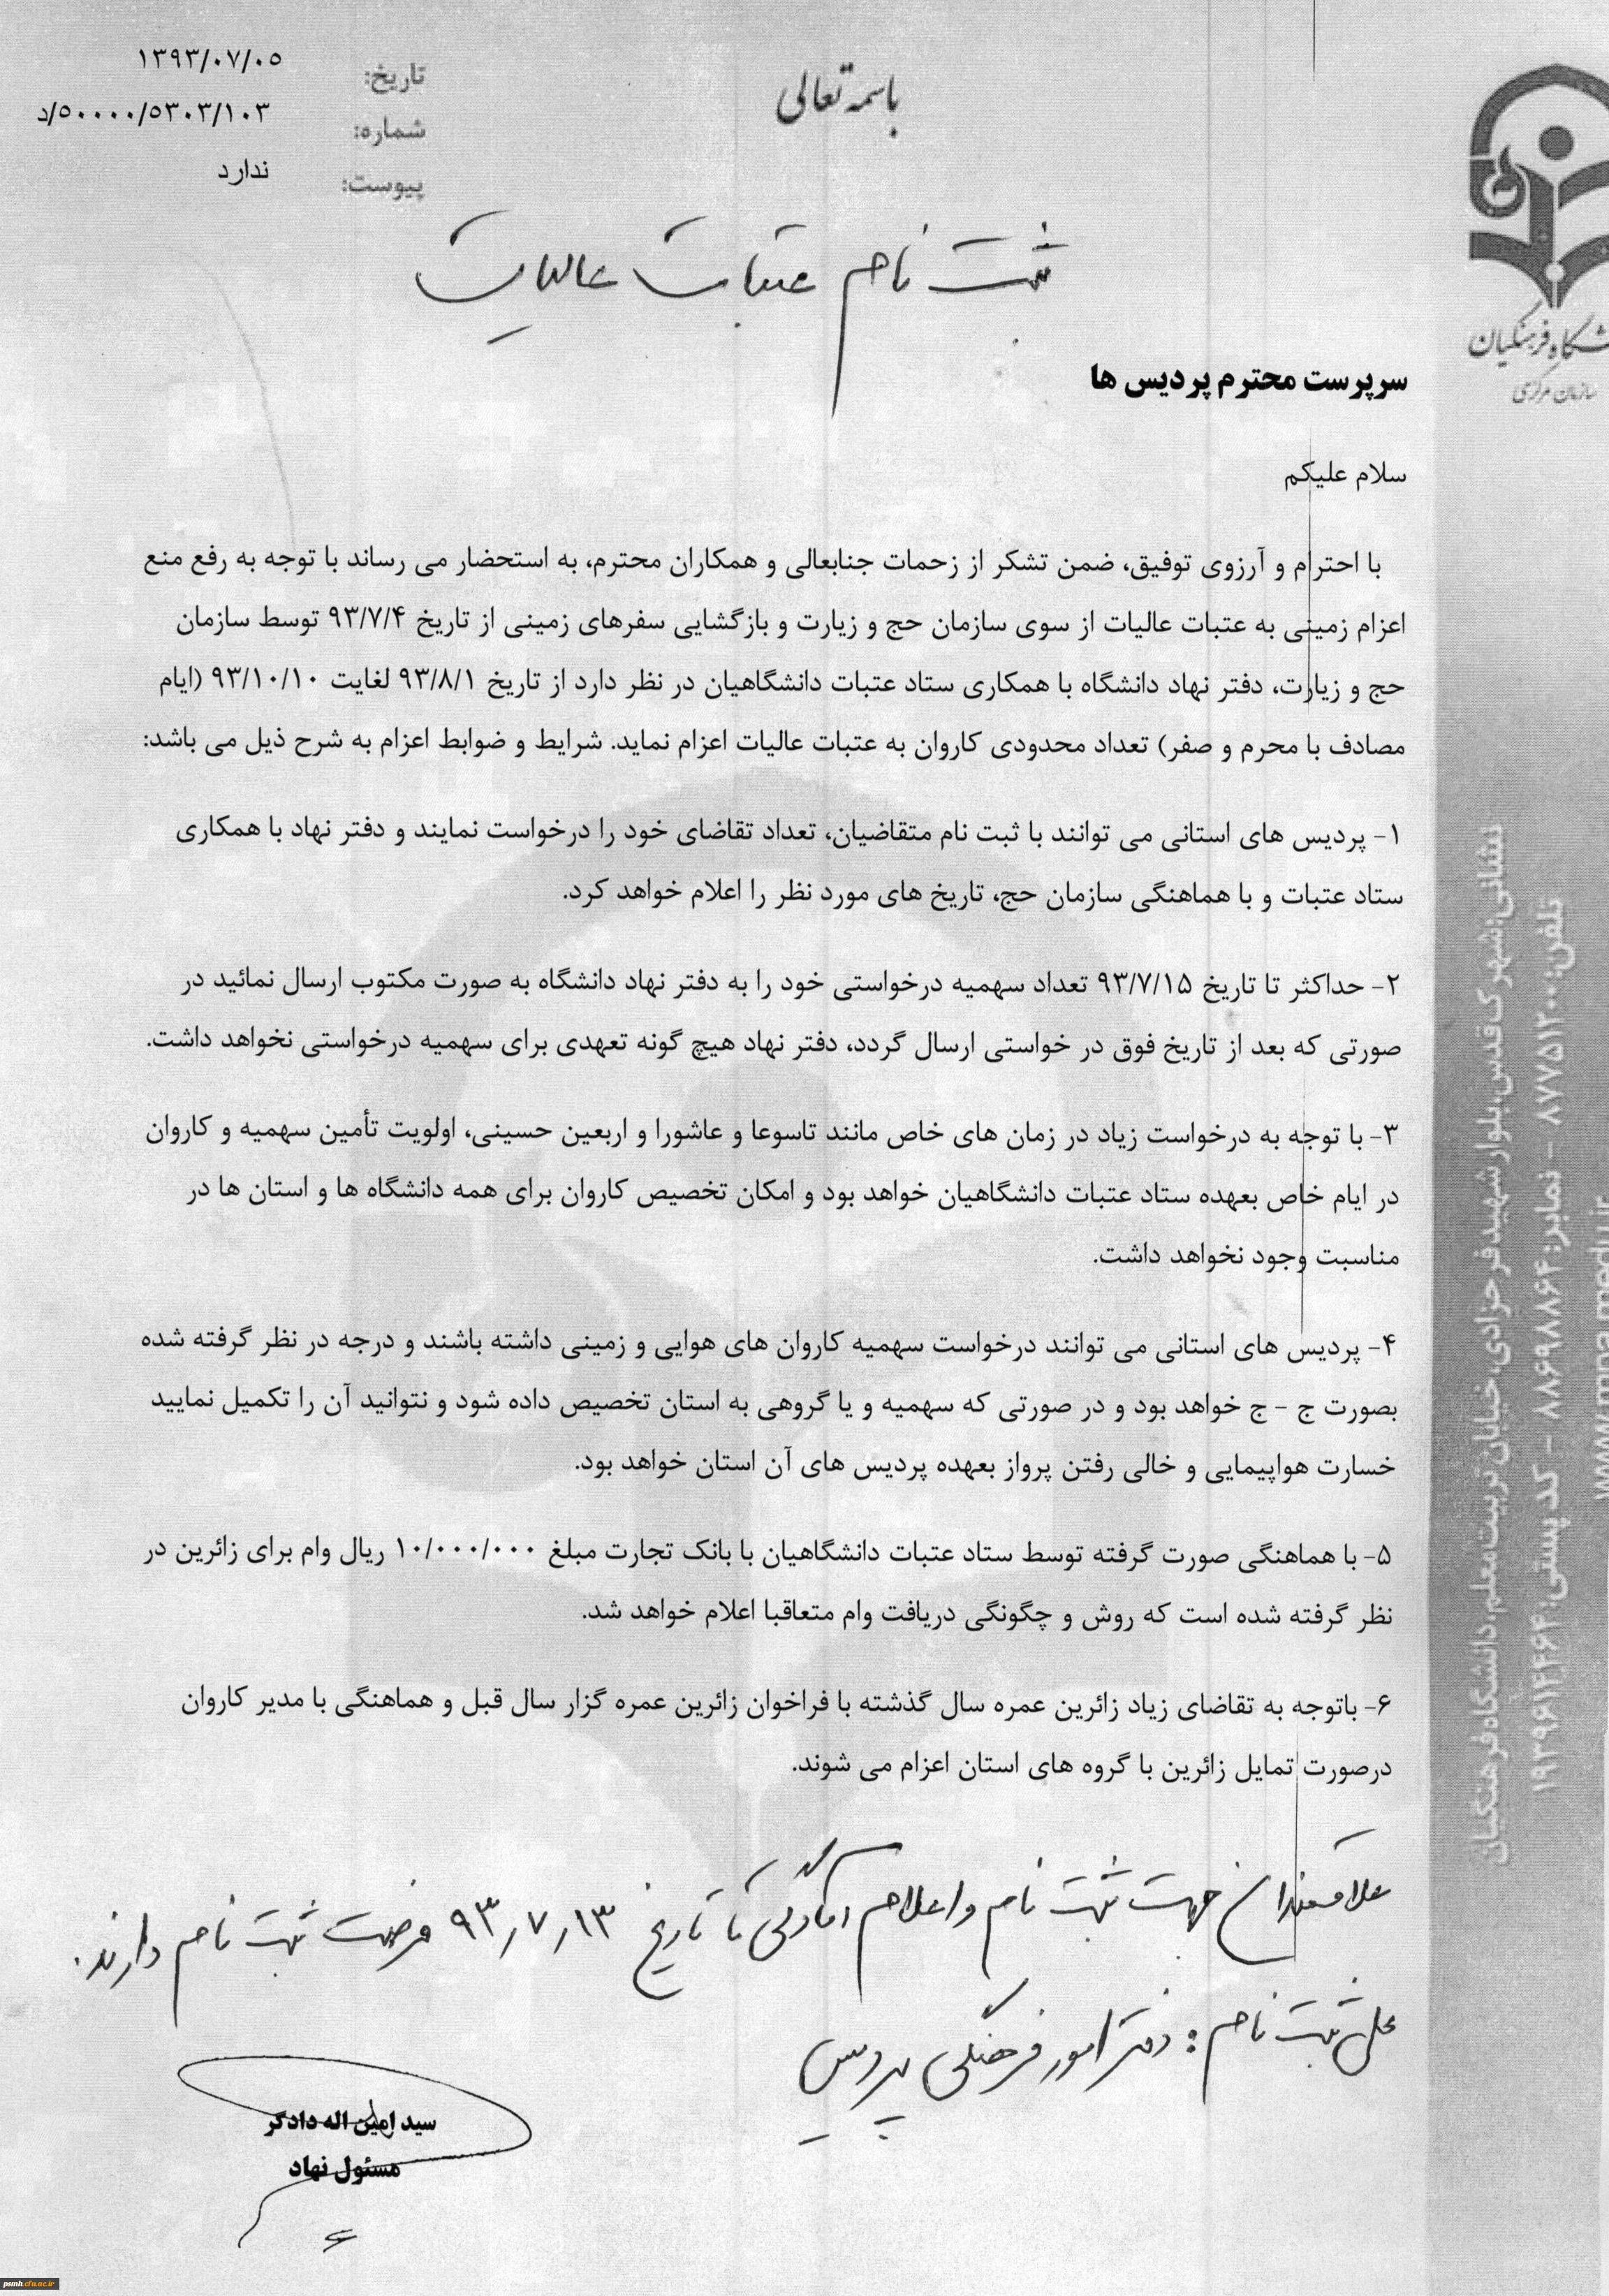 باسمه تعالی
تاریخ: ۱۳۹۳/۰۷/۰۵
شماره: ۵۰۰۰۰/۵۳۰۳/۱۰۳/د
پیوست: ندارد
شگاه فرهنگیان
سازمان مرکزی
ثبت نام عتبات عالیات
سرپرست محترم پردیس ها
سلام علیکم
با احترام و آرزوی توفیق، ضمن تشکر از زحمات جنابعالی و همکاران محترم، به استحضار می رساند با توجه به رفع منع
اعزام زمینی به عتبات عالیات از سوی سازمان حج و زیارت و بازگشایی سفرهای زمینی از تاریخ ۹۳/۷/۴ توسط سازمان
حج و زیارت، دفتر نهاد دانشگاه با همکاری ستاد عتبات دانشگاهیان در نظر دارد از تاریخ ۹۳/۸/۱ لغایت ۹۳/۱۰/۱۰ (ایام
مصادف با محرم و صفر) تعداد محدودی کاروان به عتبات عالیات اعزام نماید. شرایط و ضوابط اعزام به شرح ذیل می باشد:
۱- پردیس های استانی می توانند با ثبت نام متقاضیان، تعداد تقاضای خود را درخواست نمایند و دفتر نهاد با همکاری
ستاد عتبات و با هماهنگی سازمان حج، تاریخ های مورد نظر را اعلام خواهد کرد.
۲- حداکثر تا تاریخ ۹۳/۷/۱۵ تعداد سهمیه درخواستی خود را به دفتر نهاد دانشگاه به صورت مکتوب ارسال نمائید در
صورتی که بعد از تاریخ فوق در خواستی ارسال گردد، دفتر نهاد هیچ گونه تعهدی برای سهمیه درخواستی نخواهد داشت.
۳- با توجه به درخواست زیاد در زمان های خاص مانند تاسوعا و عاشورا و اربعین حسینی، اولویت تأمین سهمیه و کاروان
در ایام خاص بعهده ستاد عتبات دانشگاهیان خواهد بود و امکان تخصیص کاروان برای همه دانشگاه ها و استان ها در
مناسبت وجود نخواهد داشت.
۴- پردیس های استانی می توانند درخواست سهمیه کاروان های هوایی و زمینی داشته باشند و درجه در نظر گرفته شده
بصورت ج - ج خواهد بود و در صورتی که سهمیه و یا گروهی به استان تخصیص داده شود و نتوانید آن را تکمیل نمایید
خسارت هواپیمایی و خالی رفتن پرواز بعهده پردیس های آن استان خواهد بود.
۵- با هماهنگی صورت گرفته توسط ستاد عتبات دانشگاهیان با بانک تجارت مبلغ ۱۰/۰۰۰/۰۰۰ ریال وام برای زائرین در
نظر گرفته شده است که روش و چگونگی دریافت وام متعاقبا اعلام خواهد شد.
۶- باتوجه به تقاضای زیاد زائرین عمره سال گذشته با فراخوان زائرین عمره گزار سال قبل و هماهنگی با مدیر کاروان
درصورت تمایل زائرین با گروه های استان اعزام می شوند.
علاقمندان جهت ثبت نام و اعلام آمادگی تا تاریخ ۹۳٫۷٫۱۳ فرصت ثبت نام دارند.
محل ثبت نام: دفتر امور فرهنگی پردیس
سید امین اله دادگر
مسئول نهاد
نشانی: شهرک قدس، بلوار شهید فرحزادی، خیابان تربیت معلم، دانشگاه فرهنگیان
تلفن: ۸۷۷۵۱۲۰۰ - نمابر: ۸۶۹۸۸۶۴ - کد پستی: ۱۹۳۹۶۱۴۴۶۴
psmh.cfu.ac.ir